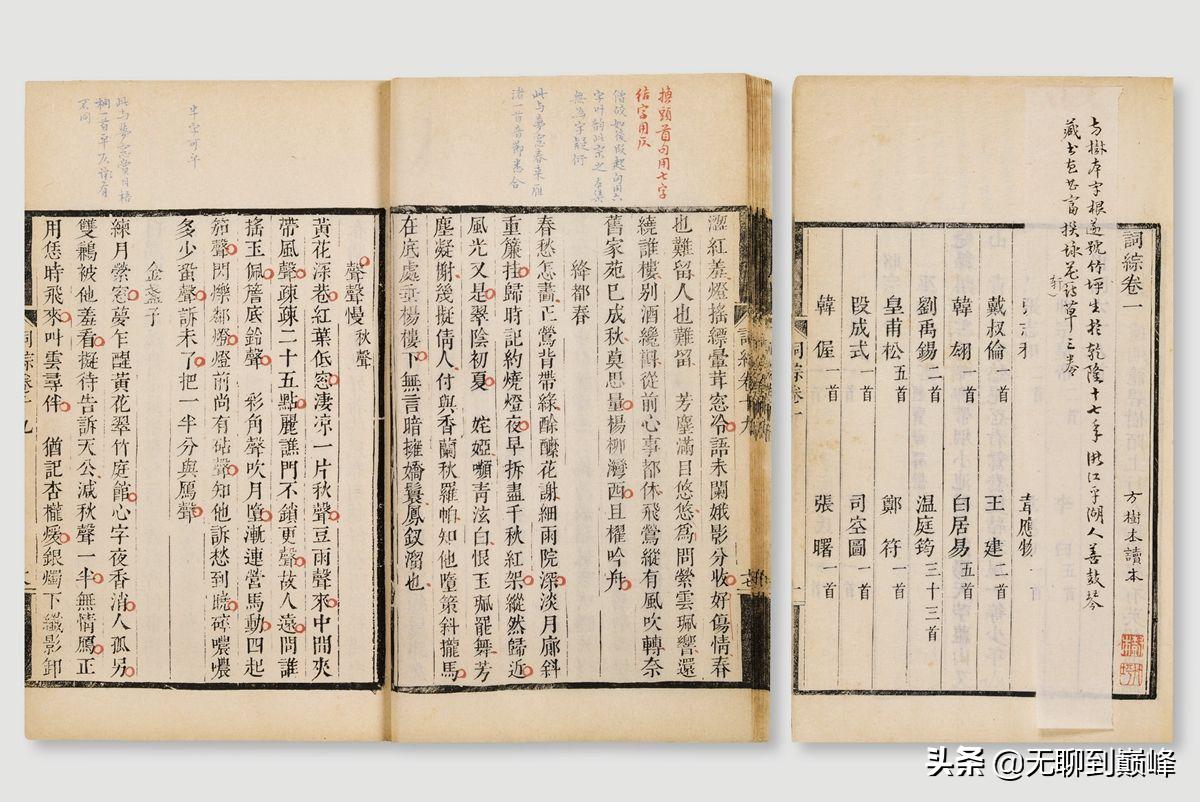 詞綜卷一
方樹本讀本
方樹本字根遂號竹坪生於乾隆十七年浙江平湖人善鼓琴
藏書甚富撰詠花詩草三卷
韋應物
戴叔倫一首 王建一首
韓翃一首 白居易五首
劉禹錫二首 溫庭筠三十三首
皇甫松五首 鄭符一首
段成式一首 司空圖一首
韓偓一首 張曙一首
詞綜卷一
換頭首句用七字
結字用仄
此与夢窗春來雁
渚一首音節悉合
澀紅羞燈搖縹暈茸窓冷語未闌娥影分收好傷情春
也難留人也難留 芳塵滿目悠悠爲問縈雲珮響還
繞誰樓別酒纔斟從前心事都休飛鶯縱有風吹轉奈
舊家苑已成秋莫思量楊柳灣西且櫂吟舟
絳都春
春愁怎畫正鶯背帶綠酴醾花謝細雨院深淡月廊斜
重簾挂歸時記約燒燈夜早拆盡千秋紅架縱然歸近
風光又是翠陰初夏 婭姹嚬靑泫白恨玉珮罷舞芳
塵凝榭幾擬倩人付與香蘭秋羅帕知他墮策斜攏馬
在底處垂楊樓下無言暗擁嬌鬟鳳釵溜也
詞綜卷十九
半字可平
此与夢窗賞月梧
聲聲慢 秋聲
黃花深巷紅葉低窓淒涼一片秋聲豆雨聲來中間夾
帶風聲疎疎二十五點麗譙門不鎖更聲故人遠問誰
搖玉佩簷底鈴聲 彩角聲吹月墮漸連營馬動四起
笳聲閃爍鄰燈燈前尚有砧聲知他訴愁到曉碎噥噥
多少蛩聲訴未了把一半分與鴈聲
金盞子
練月縈窓夢乍醒黃花翠竹庭館心字夜香消人孤另
雙鶼被他羞看擬待告訴天公減秋聲一半無情鴈正
用恁時飛來叫雲尋伴 猶記杏櫳煖銀燭下纖影卸
頭条 @无聊到巅峰